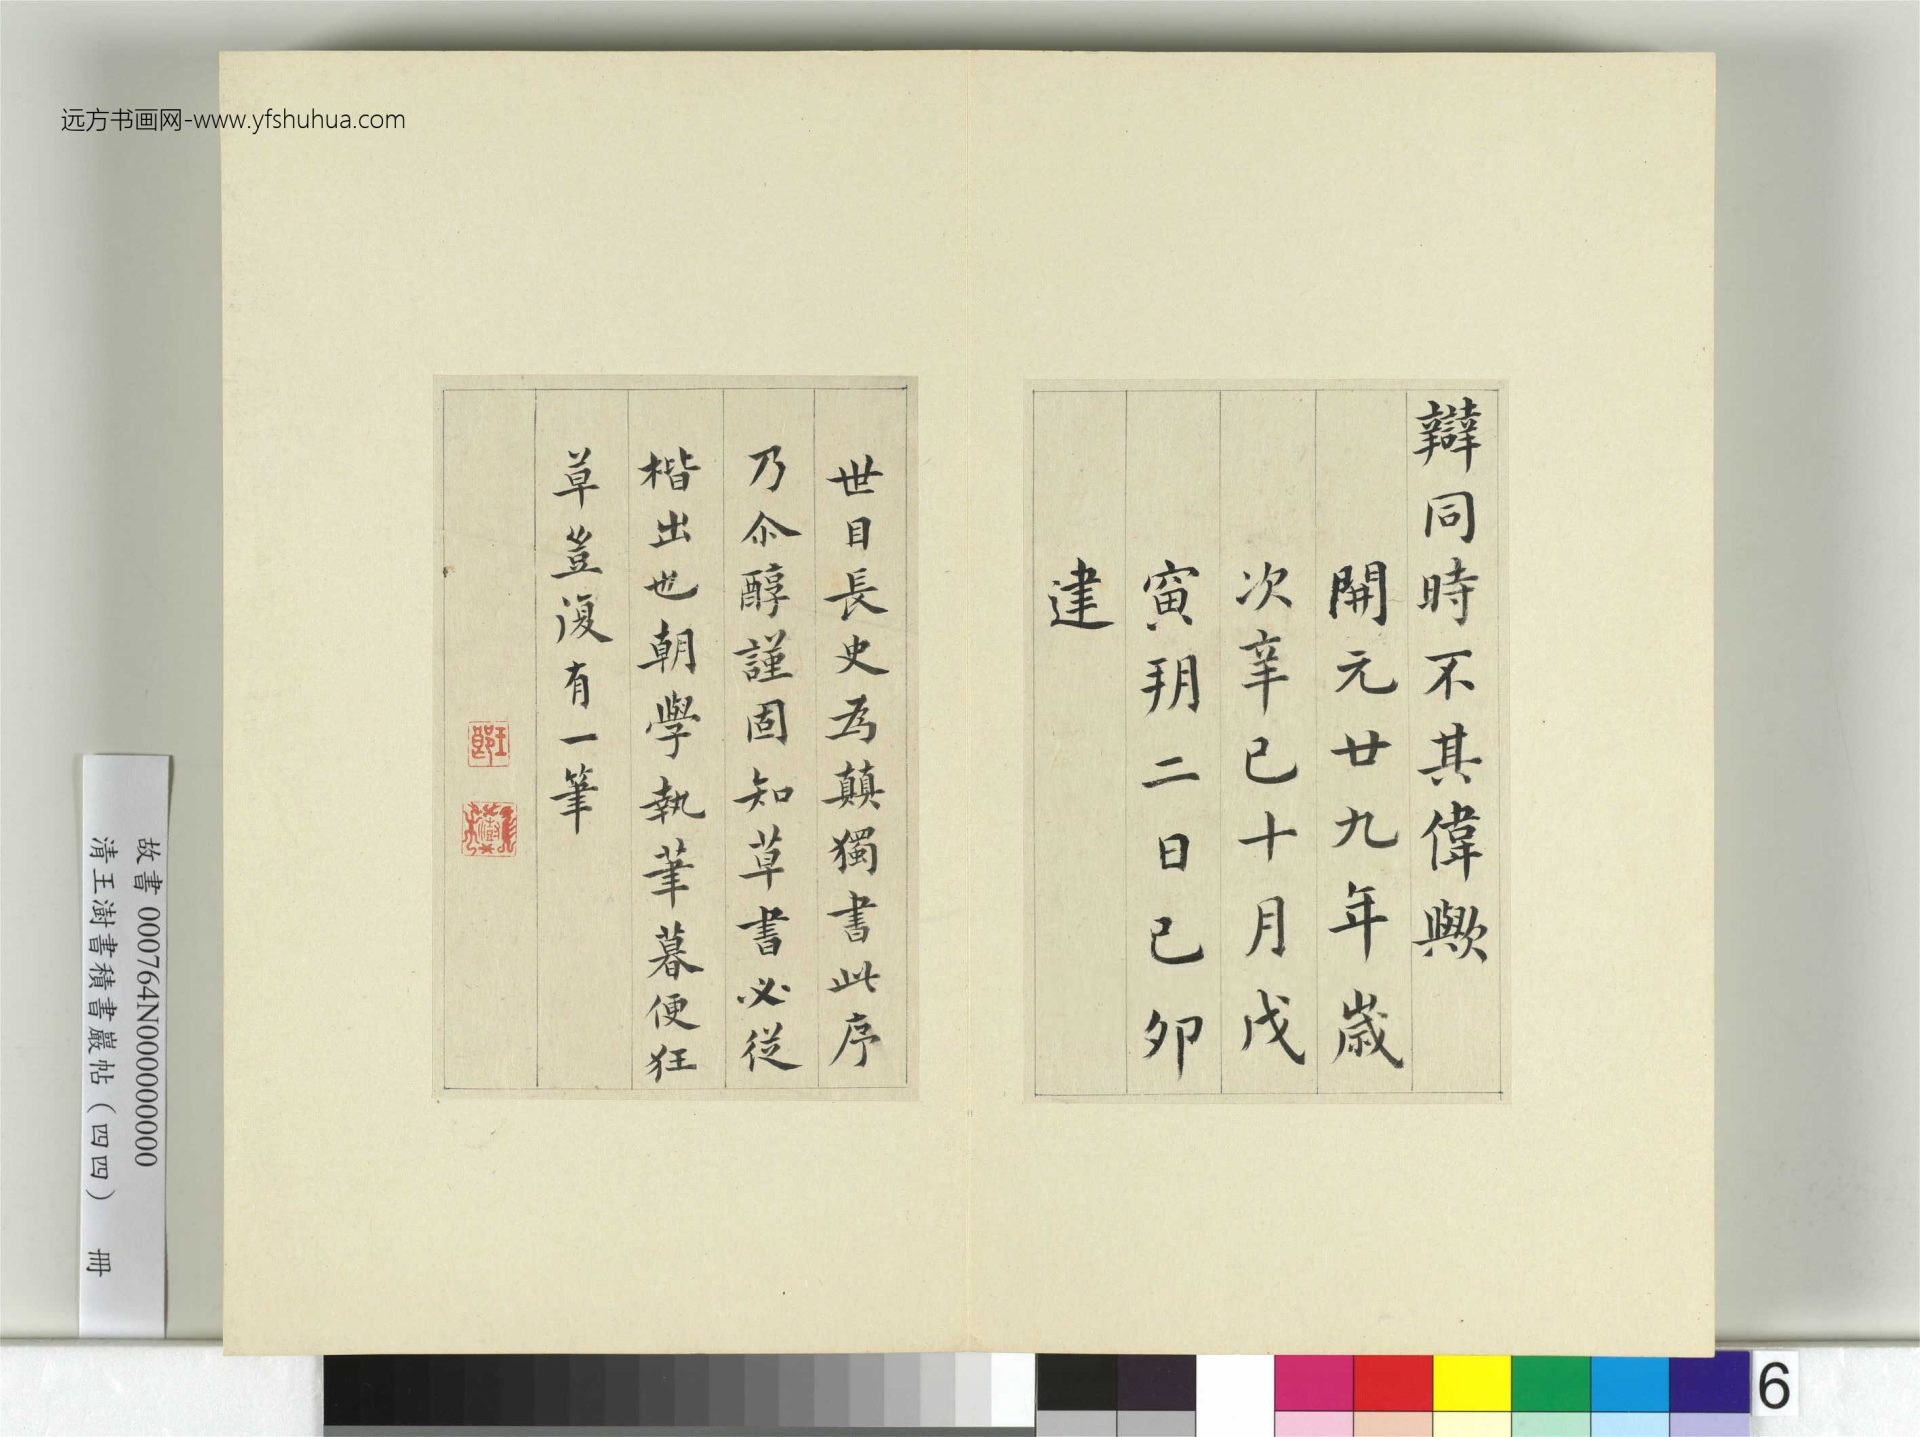 远方书画网-www.yfshuhua.com
辯同時不其偉歟
開元廿九年歲
次辛巳十月戊
寅朔二日己卯
建
世目長史為顛獨書此序
乃尒醇謹固知草書必從
楷出也朝學執筆暮便狂
草豈復有一筆
故書 000764N000000000
清王澍書積書巖帖（四四） 冊
6